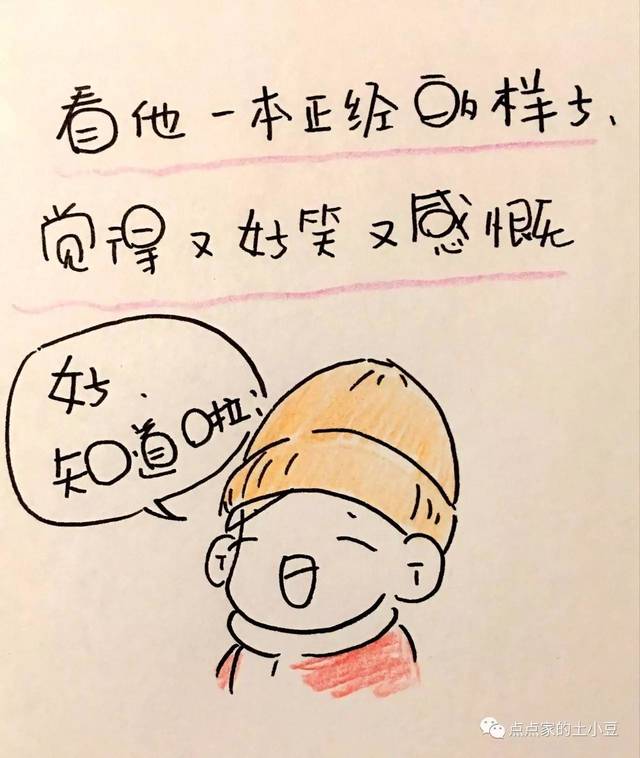 看他一本正经的样子、
觉得又好笑又感慨
好、
知道啦；
点点家的土小豆